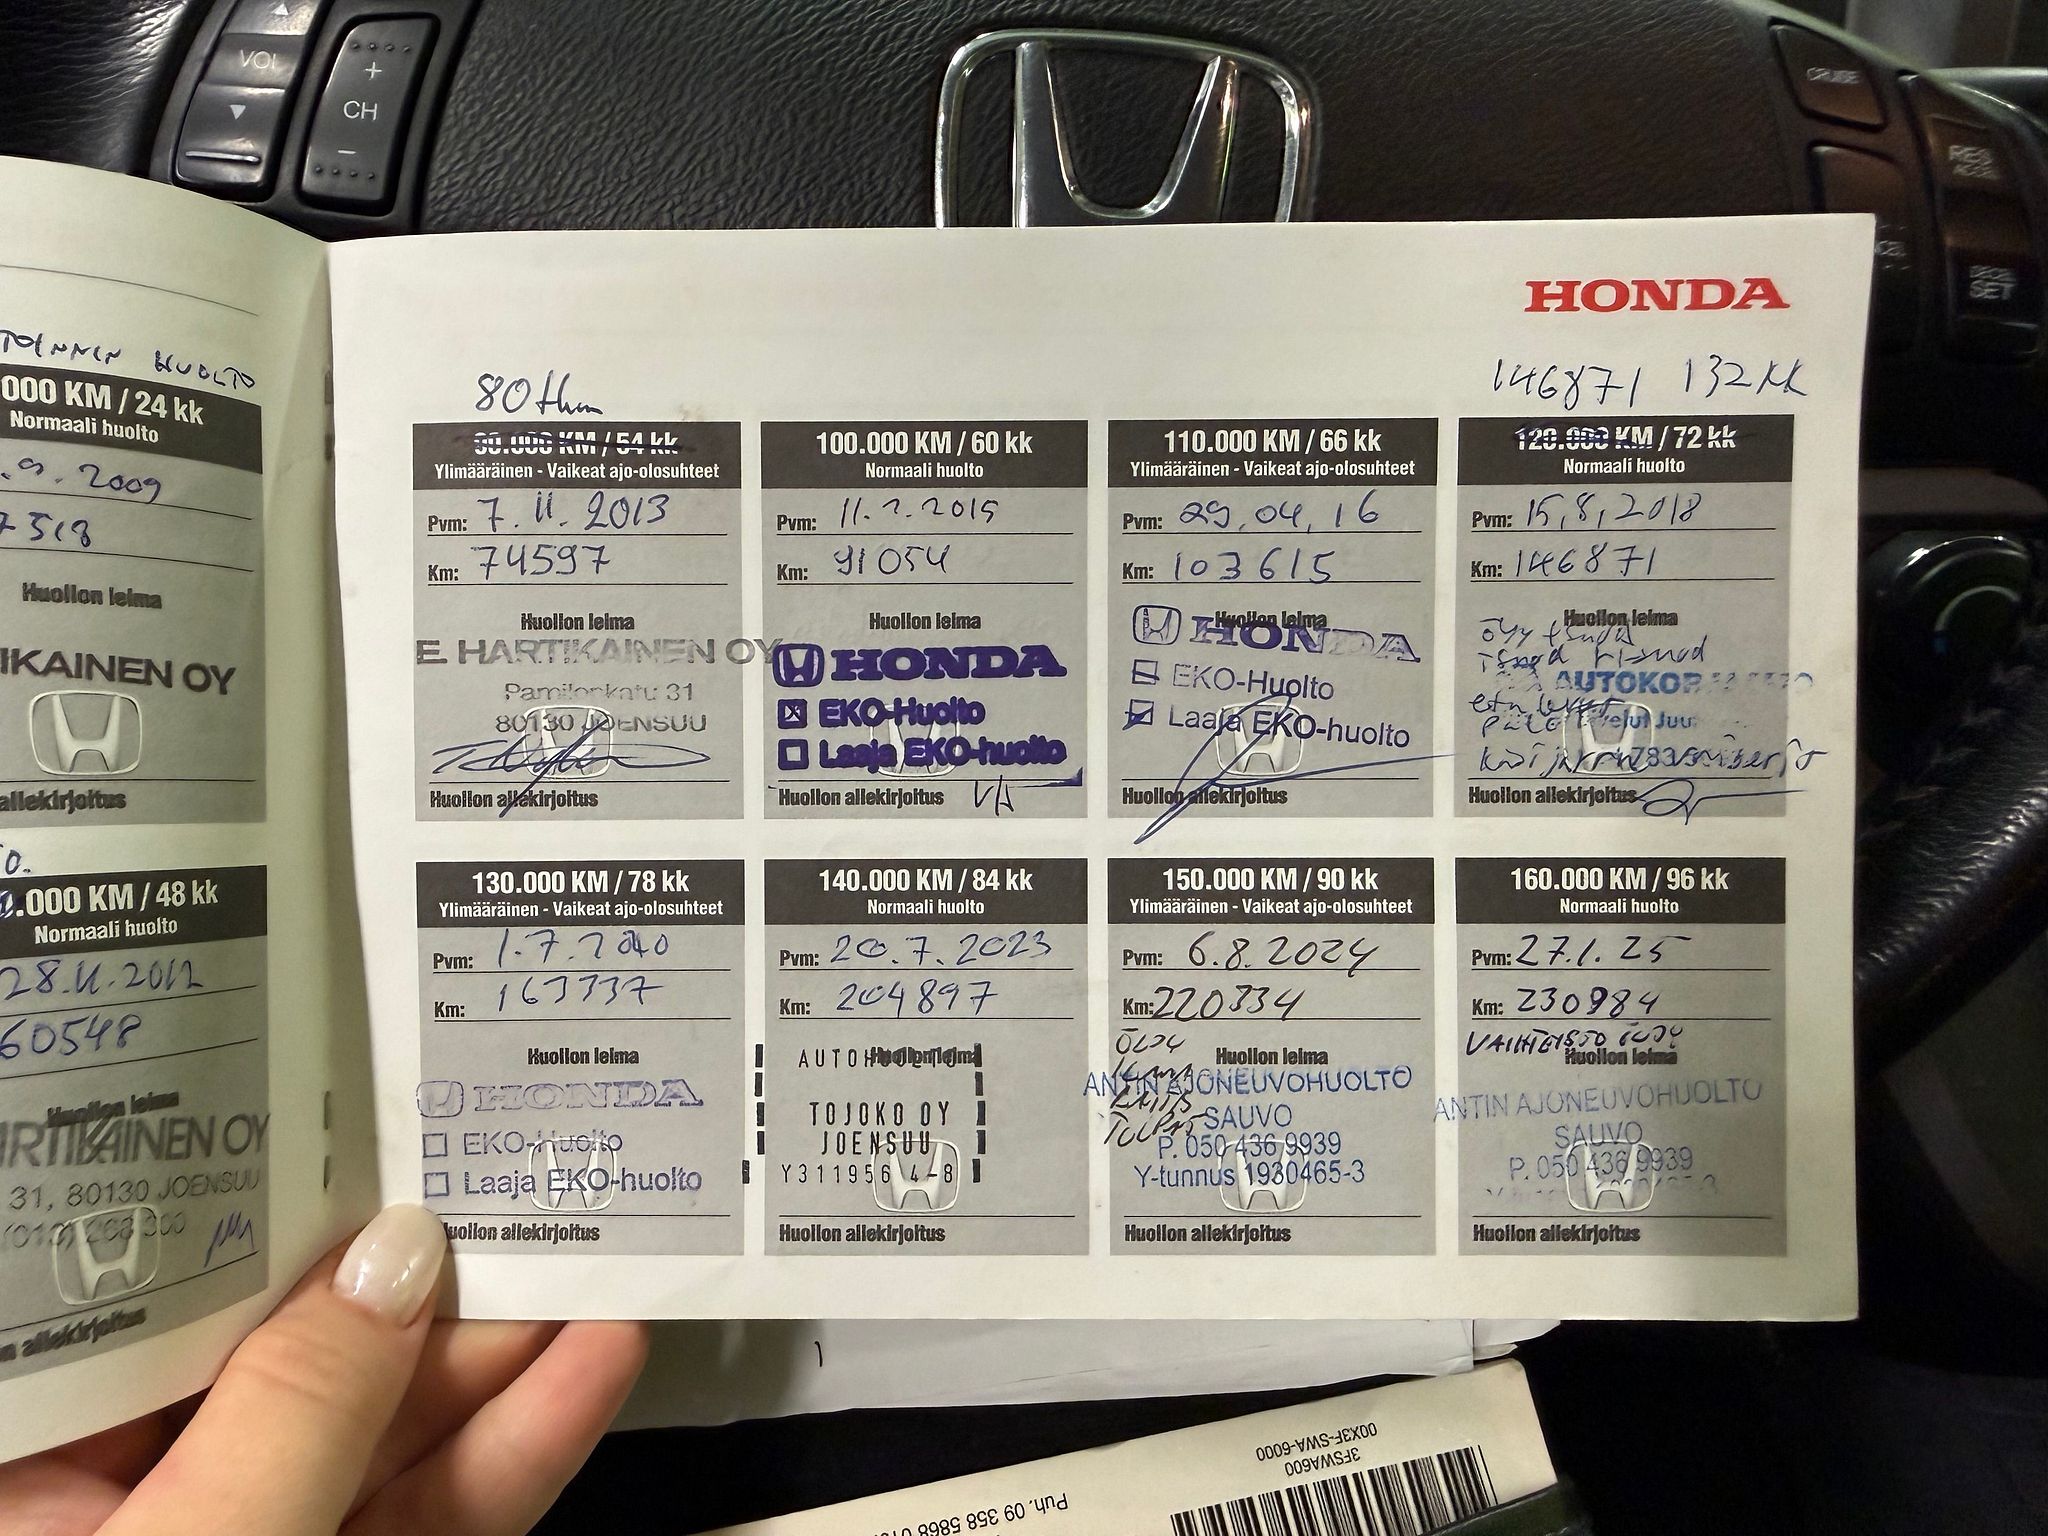 VOL
CH
CRUISE
RES
ACCEL
DECEL
SET
HUOLTO
000 KM / 24 kk
Normaali huolto
.9.2009
7518
Huollon leima
IKAINEN OY
allekirjoitus
.000 KM / 48 kk
Normaali huolto
28.11.2012
60548
Huollon leima
RTIKAINEN OY
31, 80130 JOENSUU
allekirjoitus
HONDA
80 tkm
90.000 KM / 54 kk
Ylimääräinen - Vaikeat ajo-olosuhteet
Pvm: 7.11.2013
Km: 74597
Huollon leima
E. HARTIKAINEN OY
Pamilonkatu 31
80130 JOENSUU
Huollon allekirjoitus
100.000 KM / 60 kk
Normaali huolto
Pvm: 11.2.2015
Km: 91054
Huollon leima
HONDA
EKO-Huolto
Laaja EKO-huolto
Huollon allekirjoitus
110.000 KM / 66 kk
Ylimääräinen - Vaikeat ajo-olosuhteet
Pvm: 29.04.16
Km: 103615
Huollon leima
HONDA
EKO-Huolto
Laaja EKO-huolto
Huollon allekirjoitus
146871 132 kk
120.000 KM / 72 kk
Normaali huolto
Pvm: 15,8,2018
Km: 146871
Huollon leima
Huollon allekirjoitus
130.000 KM / 78 kk
Ylimääräinen - Vaikeat ajo-olosuhteet
Pvm: 1.7.2020
Km: 163337
Huollon leima
HONDA
EKO-Huolto
Laaja EKO-huolto
Huollon allekirjoitus
140.000 KM / 84 kk
Normaali huolto
Pvm: 20.7.2023
Km: 204897
Huollon leima
AUTOHUOLTO
TOJOKO OY
JOENSUU
Y311956 4-8
Huollon allekirjoitus
150.000 KM / 90 kk
Ylimääräinen - Vaikeat ajo-olosuhteet
Pvm: 6.8.2024
Km: 220334
Huollon leima
ÖLJY
ANTIN AJONEUVOHUOLTO
SAUVO
P. 050 436 9939
Y-tunnus 1930465-3
Huollon allekirjoitus
160.000 KM / 96 kk
Normaali huolto
Pvm: 27.1.25
Km: 230984
VAIHTEISTO ÖLJY
Huollon leima
ANTIN AJONEUVOHUOLTO
SAUVO
P. 050 436 9939
Huollon allekirjoitus
00X3F-SWA-6000
3FSWA600
Puh. 09 358 5868